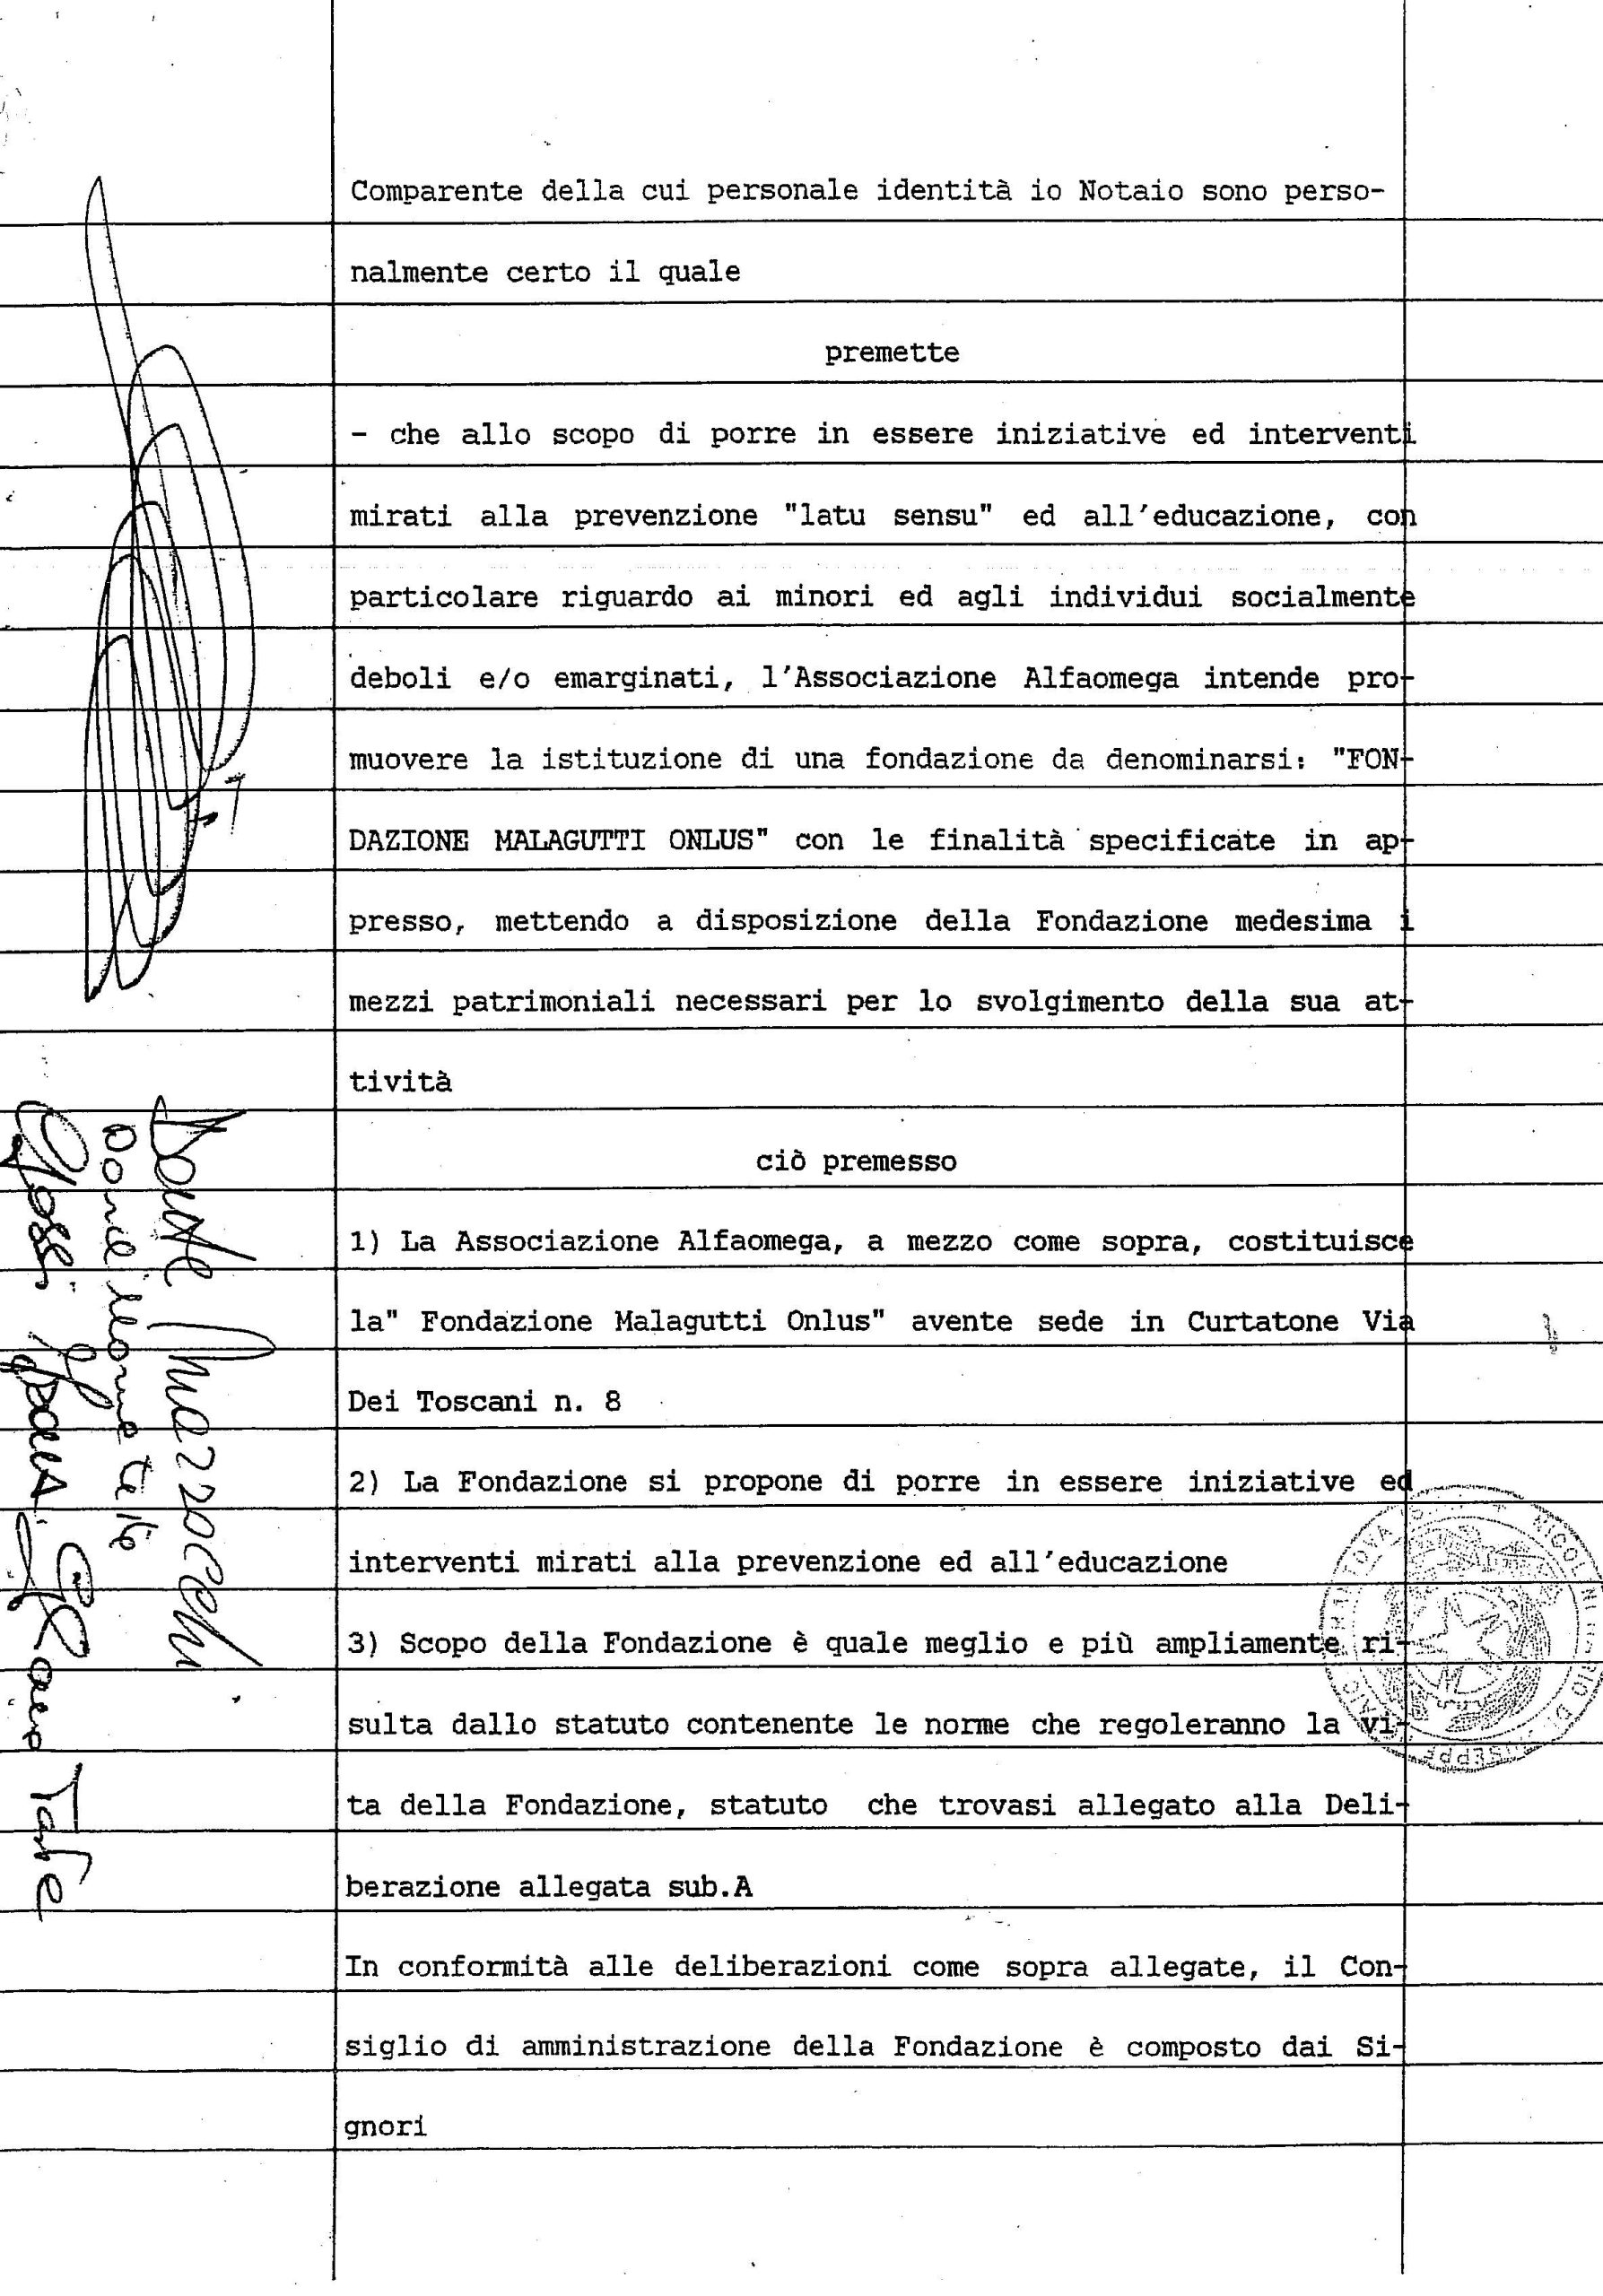 Comparente della cui personale identità io Notaio sono perso-
nalmente certo il quale
premette
- che allo scopo di porre in essere iniziative ed interventi
mirati alla prevenzione "latu sensu" ed all'educazione, con
particolare riguardo ai minori ed agli individui socialmente
deboli e/o emarginati, l'Associazione Alfaomega intende pro-
muovere la istituzione di una fondazione da denominarsi: "FON-
DAZIONE MALAGUTTI ONLUS" con le finalità specificate in ap-
presso, mettendo a disposizione della Fondazione medesima i
mezzi patrimoniali necessari per lo svolgimento della sua at-
tività
ciò premesso
1) La Associazione Alfaomega, a mezzo come sopra, costituisce
la" Fondazione Malagutti Onlus" avente sede in Curtatone Via
Dei Toscani n. 8
2) La Fondazione si propone di porre in essere iniziative ed
interventi mirati alla prevenzione ed all'educazione
3) Scopo della Fondazione è quale meglio e più ampliamente ri-
sulta dallo statuto contenente le norme che regoleranno la vi-
ta della Fondazione, statuto che trovasi allegato alla Deli-
berazione allegata sub.A
In conformità alle deliberazioni come sopra allegate, il Con-
siglio di amministrazione della Fondazione è composto dai Si-
gnori